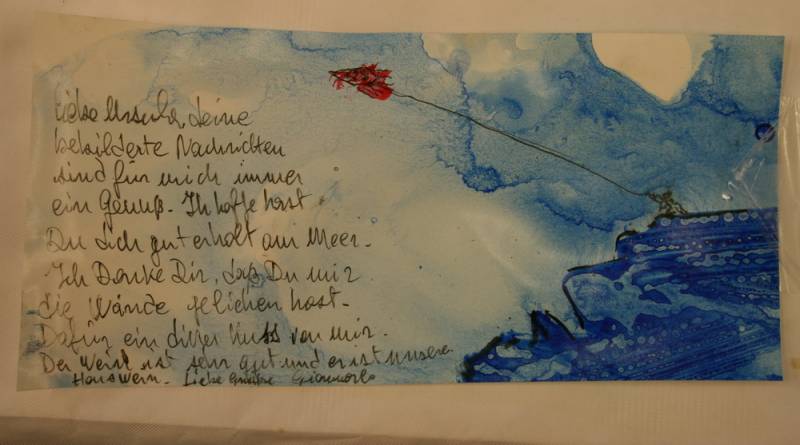 Liebe Ursula, deine
bebilderte Nachrichten
sind für mich immer
ein Genuß. Ich hoffe hast
Du dich gut erholt am Meer.
Ich Danke Dir, daß Du mir
die Wände geliehen hast.
Dafür ein dicker Kuss von mir.
Der Wein ist sehr gut und er ist unserer
Hauswein. Liebe Grüße